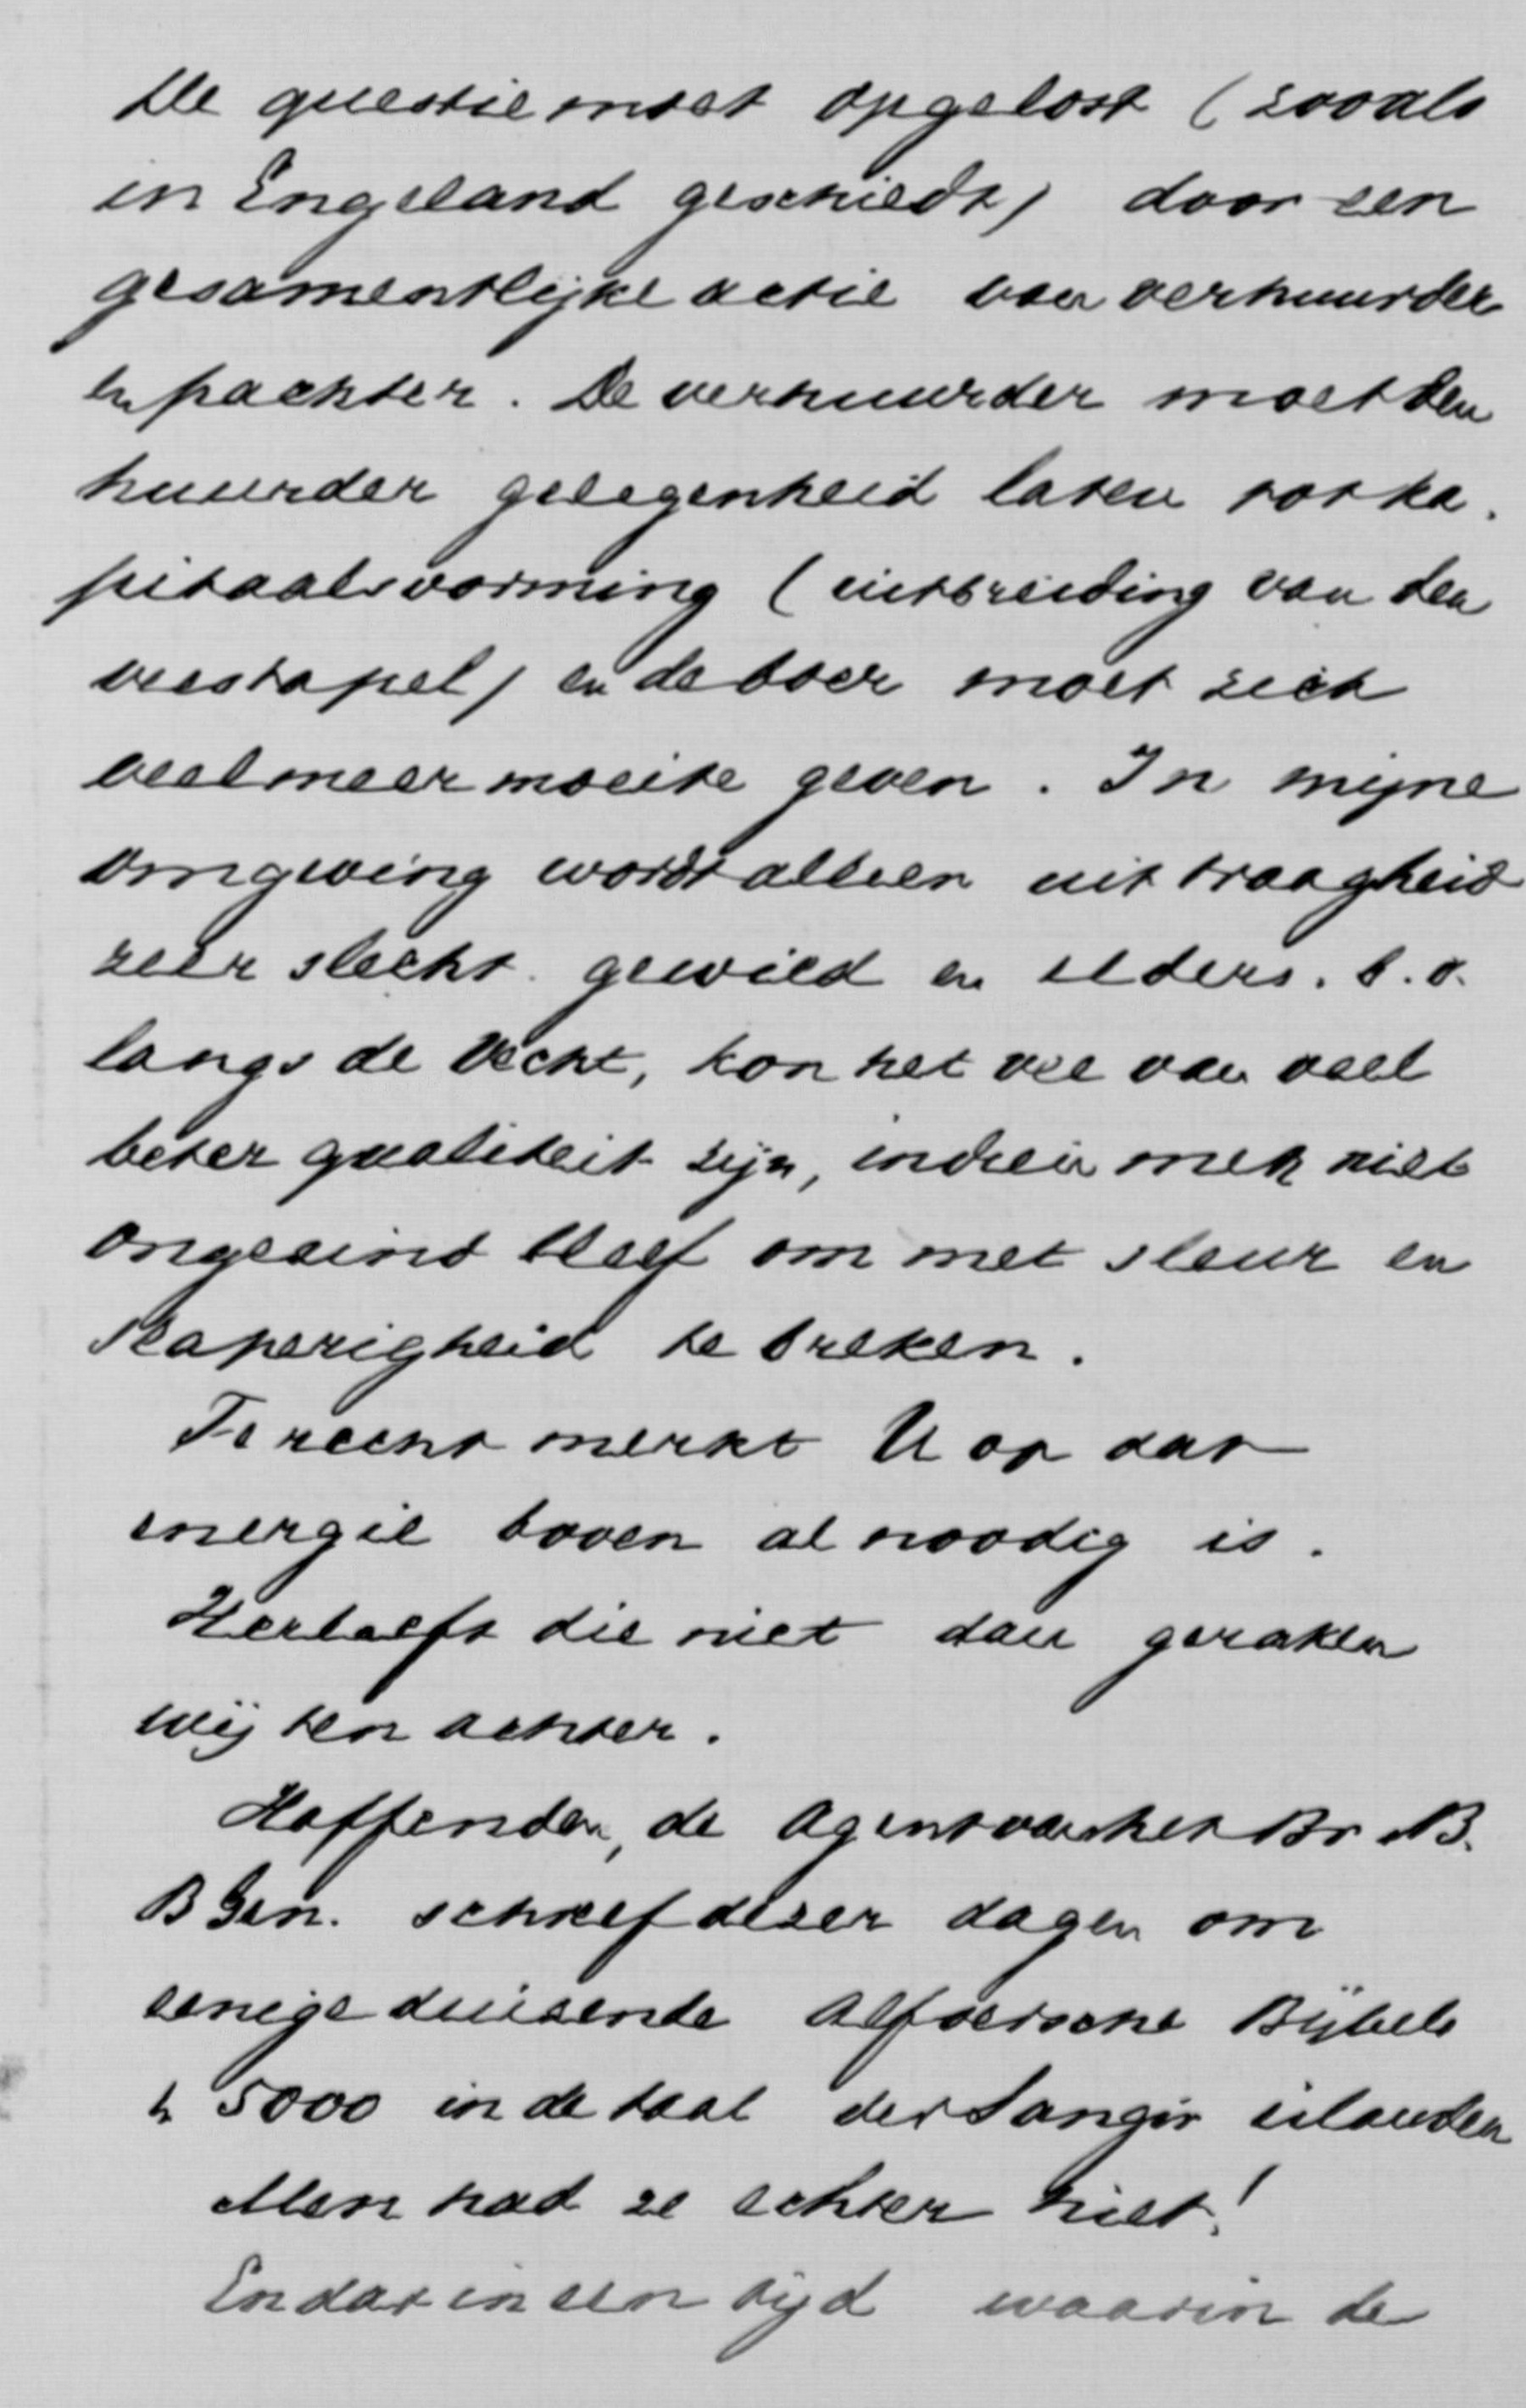 De questie moet opgelost (zooals
in Engeland geschiedt) door een
gesamentlijke actie van verhuurder
en pachter. De verhuurder moet den
huurder gelegenheid laten tot ka-
pitaalsvorming (uitbreiding van den
veestapel) en de boer moet zich
veel meer moeite geven. In mijne
omgeving wordt alleen uit traagheid
zeer slecht gewied en elders. b.v.
langs de Vecht, kon het vee van veel
beter qualiteit zijn, indien men niet
ongezind bleef om met sleur en
slaperigheid te breken.
Te recht merkt U op dat
energie boven al noodig is.
Herleeft die niet dan geraken
wij ten achter.
Haffenden, de Agent van het Br. B.
B Gen. schreef dezer dagen om
eenige duizende Alfoersche Bijbels
en 5000 in de taal der Sangir eilanden
Men had ze echter niet!
En dat in een tijd waarin de